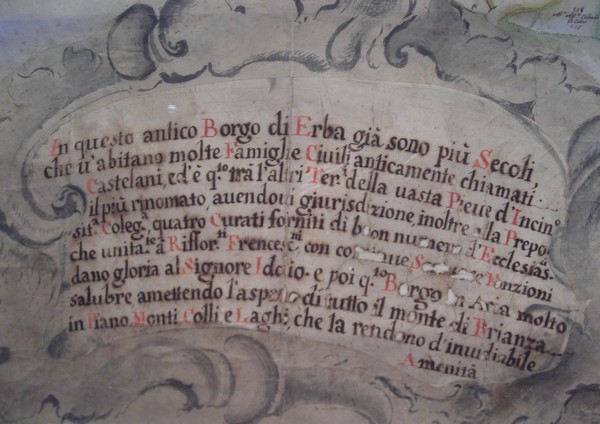 In questo antico Borgo di Erba già sono più Secoli,
che u'abitano molte Famiglie Ciuili anticamente chiamati
Castelani, ed'è q.to trà l'altri Ter.i della uasta Pieue d'Incin.o
il più rinomato, auendoui giurisdizione, inoltre alla Prepo-
sit.a Coleg.a quattro Curati forniti di buon numero d'Ecclesias.
che unita.te à Riffor.ti Frances.ni con Fonzioni
dano gloria al Signore Iddio e poi q.to Borgo in Aria molto
salubre, amettendo l'aspetto di tutto il monte di Brianza
in Piano, Monti, Colli e Laghi, che la rendono d'inuidiabile
Amenità